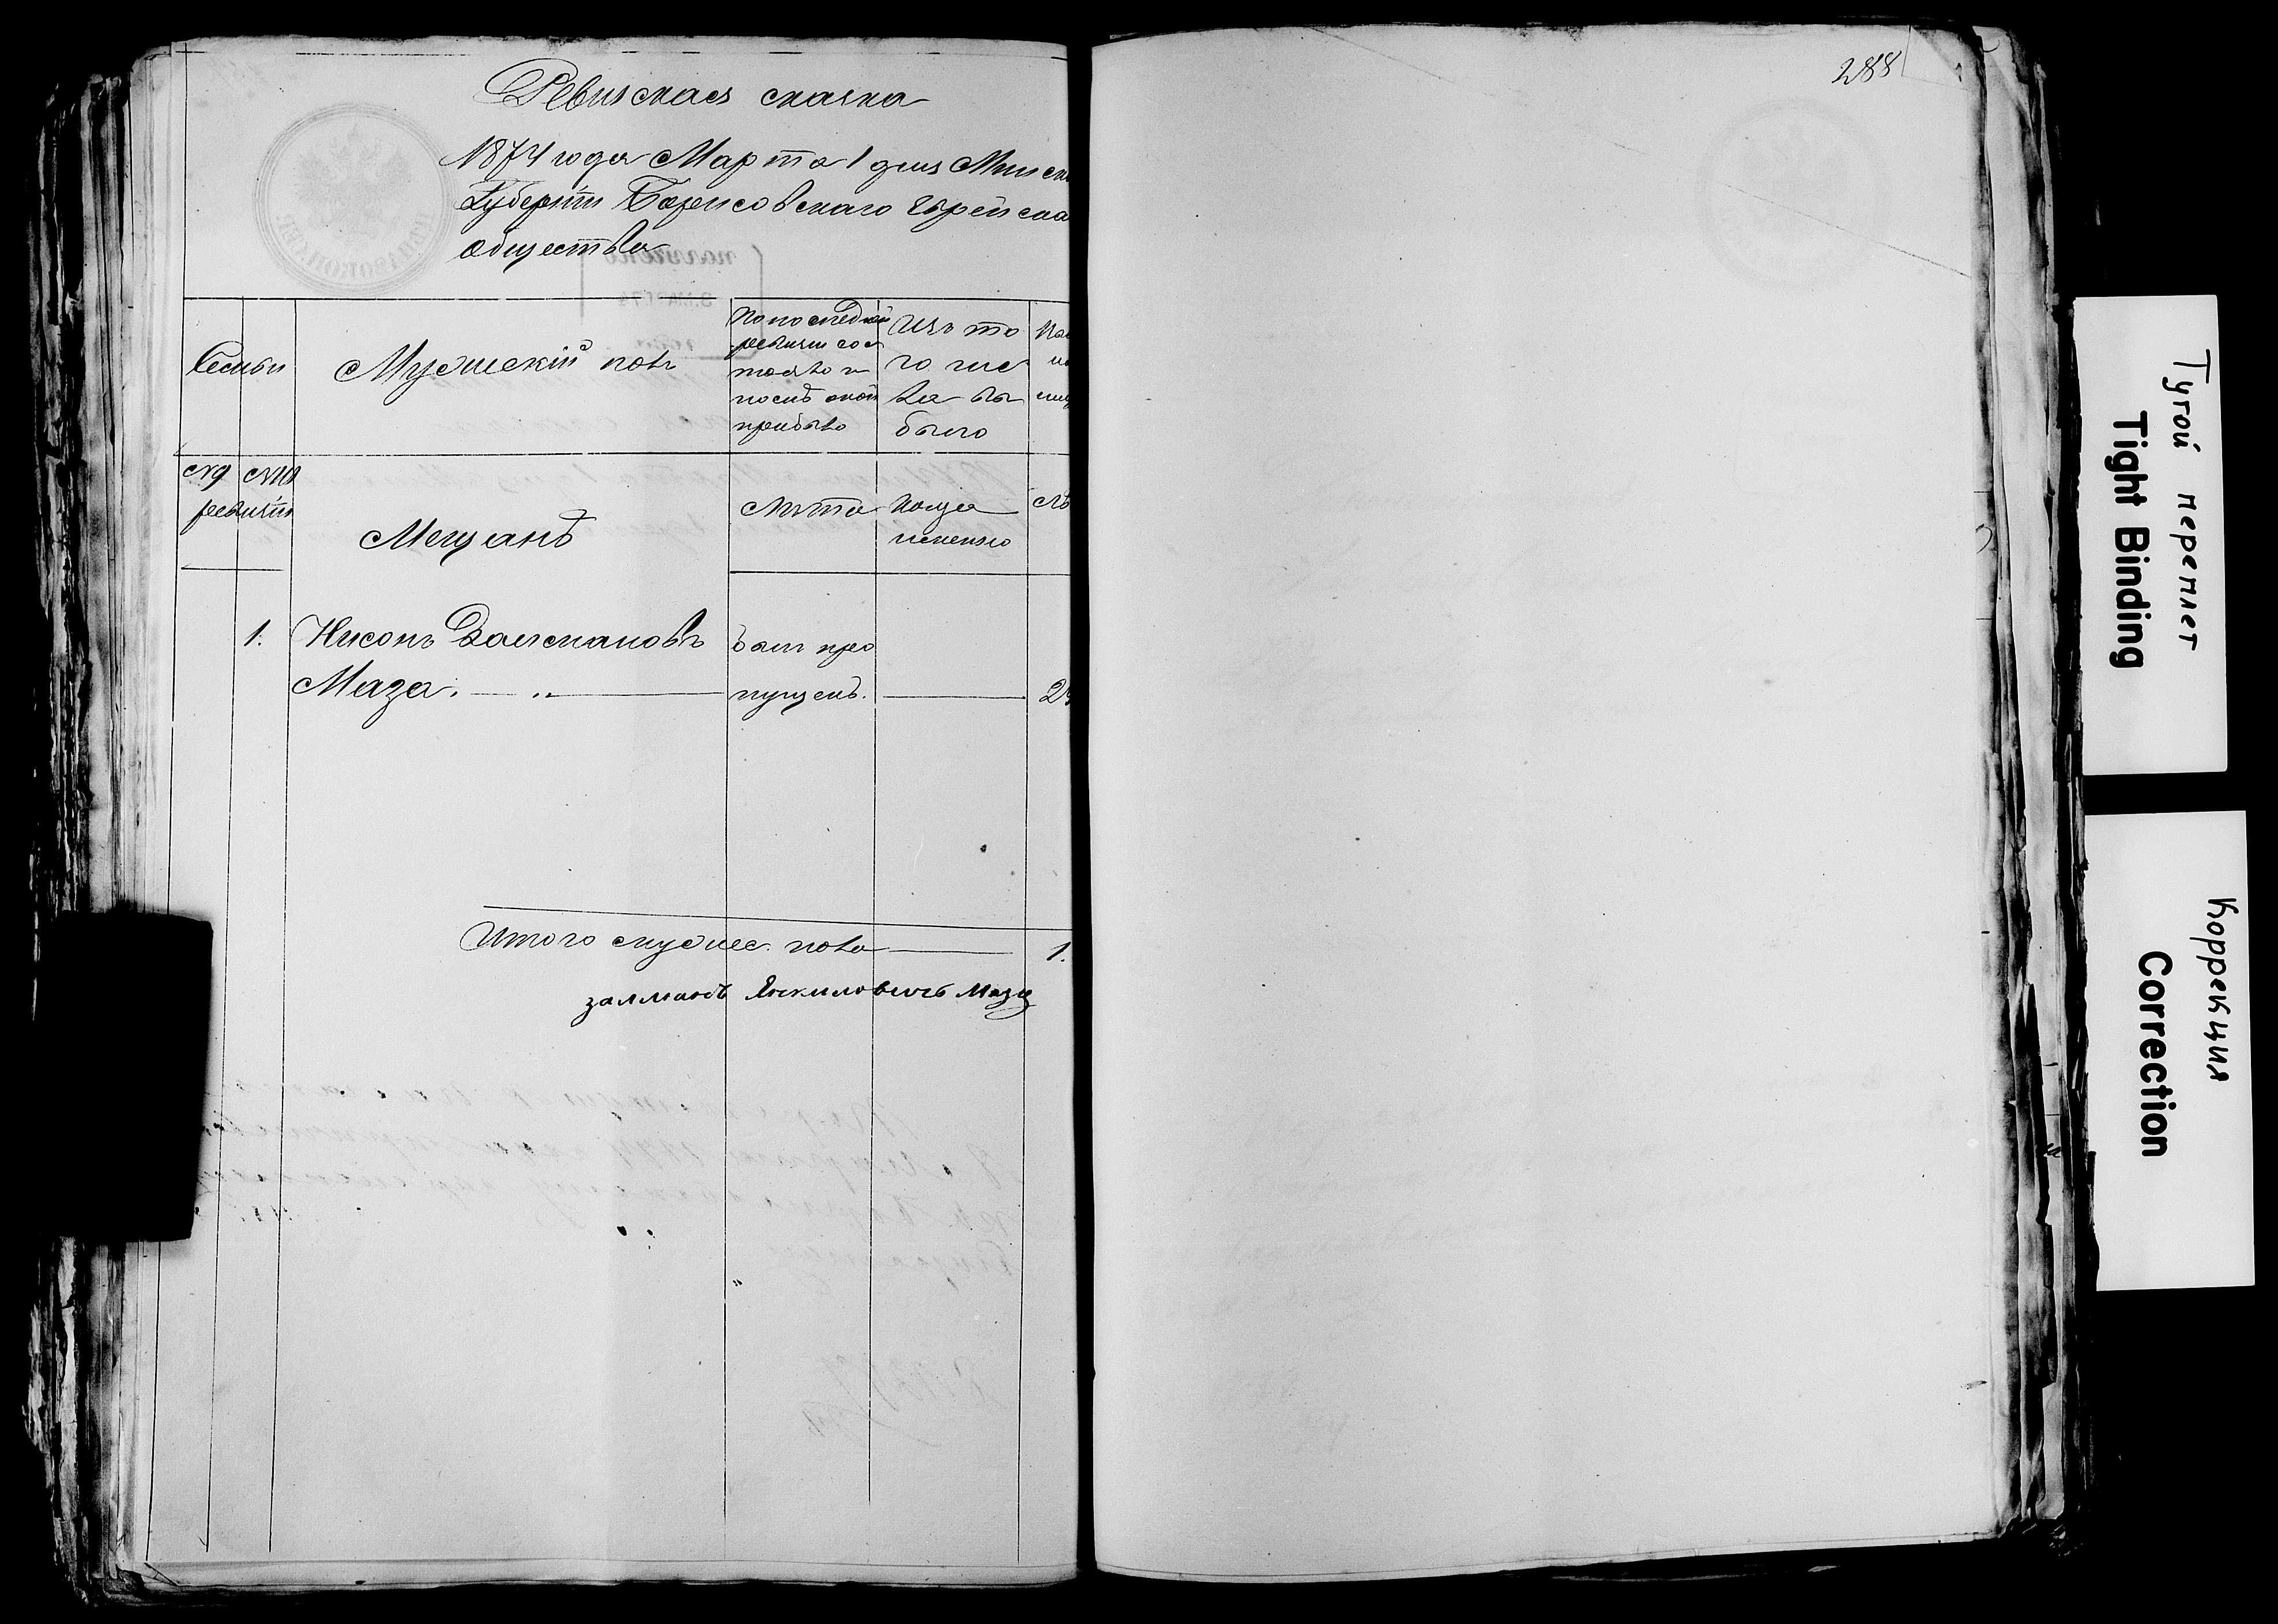 Ревизская сказка
1874 года Марта 1 дня Минск
Губерніи Борисовскаго Еврейска
общества
Семьи
Мужескій полъ
По последней
ревизіи сос
тояло и
после оной
прибыло
Изъ то
го чис
ла вы
было
№ №
ревизіи
Мещанъ
Лѣта
Когда
именно
Лѣ
1. Нисонъ Залмановъ
Маза.
былъ про
пущенъ.
2
Итого мужес. пола 1.
залманъ Янкиловичъ Маза
288
Тугой переплет
Tight Binding
Коррекция
Correction